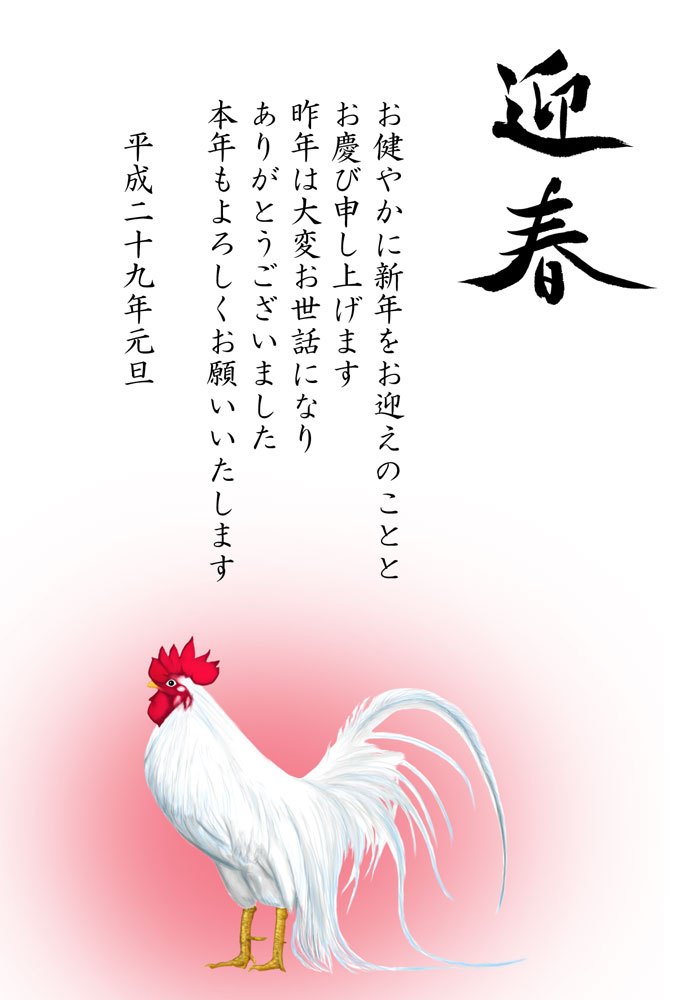 迎春
お健やかに新年をお迎えのことと
お慶び申し上げます
昨年は大変お世話になり
ありがとうございました
本年もよろしくお願いいたします
平成二十九年元旦